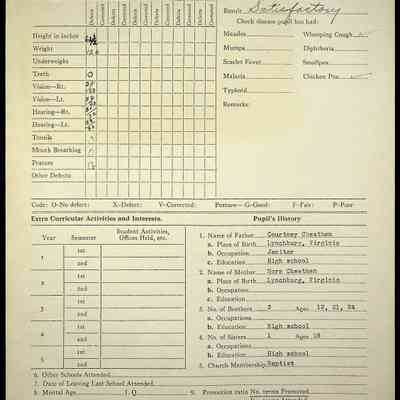 Defects Corrected Defects Corrected Defects Corrected Defects Corrected Defects Corrected Defects Corrected
Result Satisfactory
Check disease pupil has had:
Height in inches
Measles Whooping Cough ✓
Weight
Mumps Diphtheria
Underweight
Scarlet Fever Smallpox
Teeth O
Malaria Chicken Pox ✓
Vision—Rt.
Typhoid
Vision—Lt.
Remarks:
Hearing—Rt.
Hearing—Lt.
Tonsils
Mouth Breathing
Posture
Other Defects
Code: O-No defect: X-Defect: V-Corrected: Posture— G-Good: F-Fair: P-Poor
Extra Curricular Activities and Interests. Pupil's History
Year Semester Student Activities, Offices Held, etc.
1. Name of Father Courtney Cheatham
a. Place of Birth Lynchburg, Virginia
b. Occupation Janitor
c. Education High school
2. Name of Mother Cheatham
a. Place of Birth Lynchburg, Virginia
b. Occupation
c. Education
3. No. of Brothers 3 Ages 19, 21, 24
a. Occupations
b. Education High school
4. No. of Sisters 1 Ages 16
a. Occupations
b. Education High school
5. Church Membership Baptist
1 1st
2nd
2 1st
2nd
3 1st
2nd
4 1st
2nd
5 1st
2nd
6. Other Schools Attended
7. Date of Leaving Last School Attended
8. Mental Age I. Q. 9. Promotion ratio No. terms Promoted